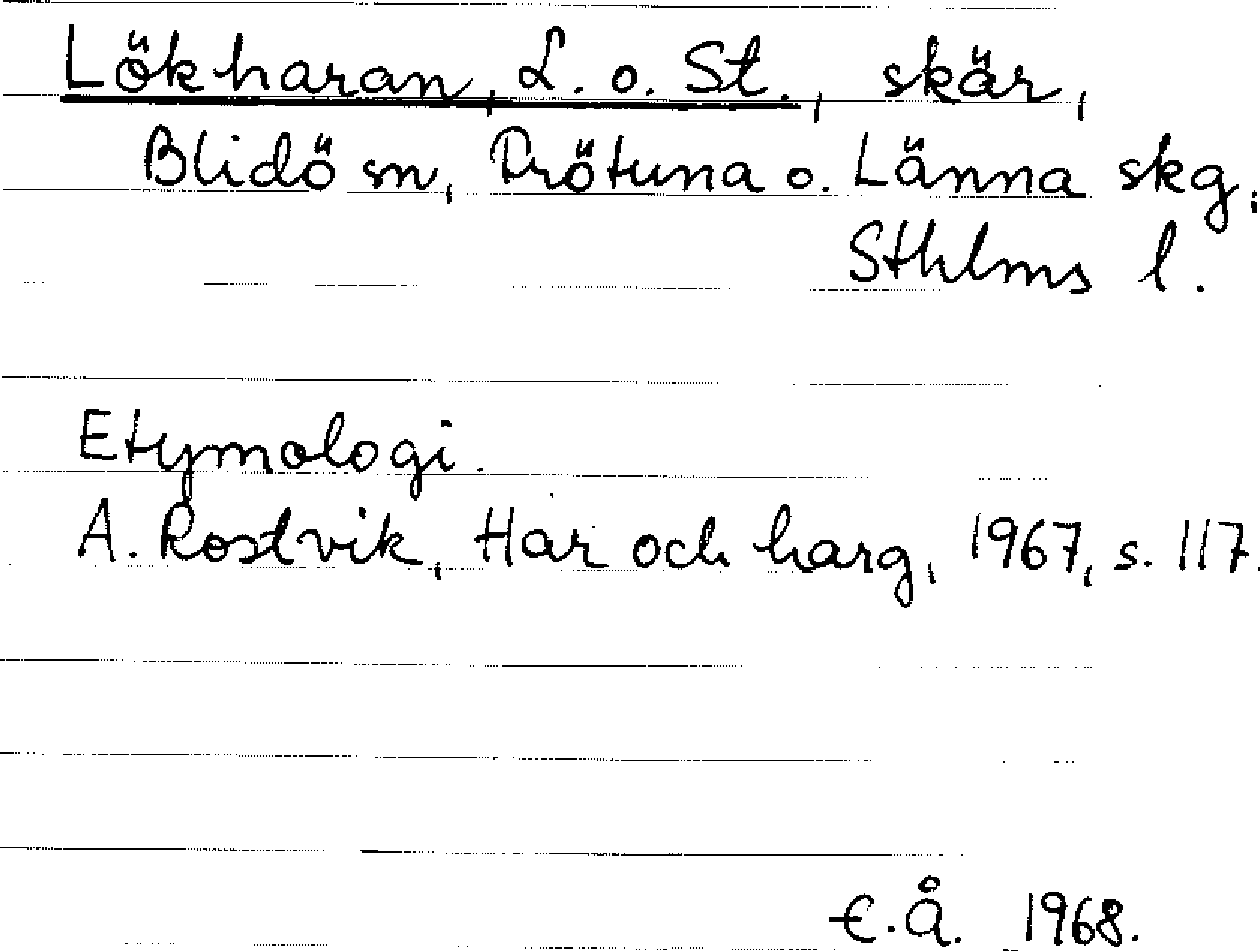 Lökharan, L. o. St., skär,
Blidö sn, Frötuna o. Länna skg,
Sthlms l.
Etymologi.
A. Rostvik, Har och harg, 1967, s. 117.
E.Å. 1968.